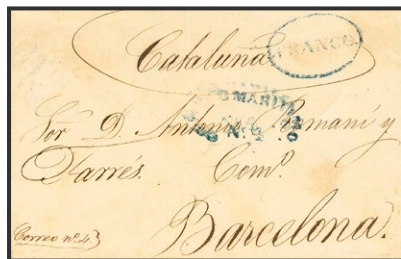 Cataluña
FRANCO
MARITIMO
Sor. D. Antonio Romaní y
Farrés. Come.
Barcelona.
Correo nº 4.